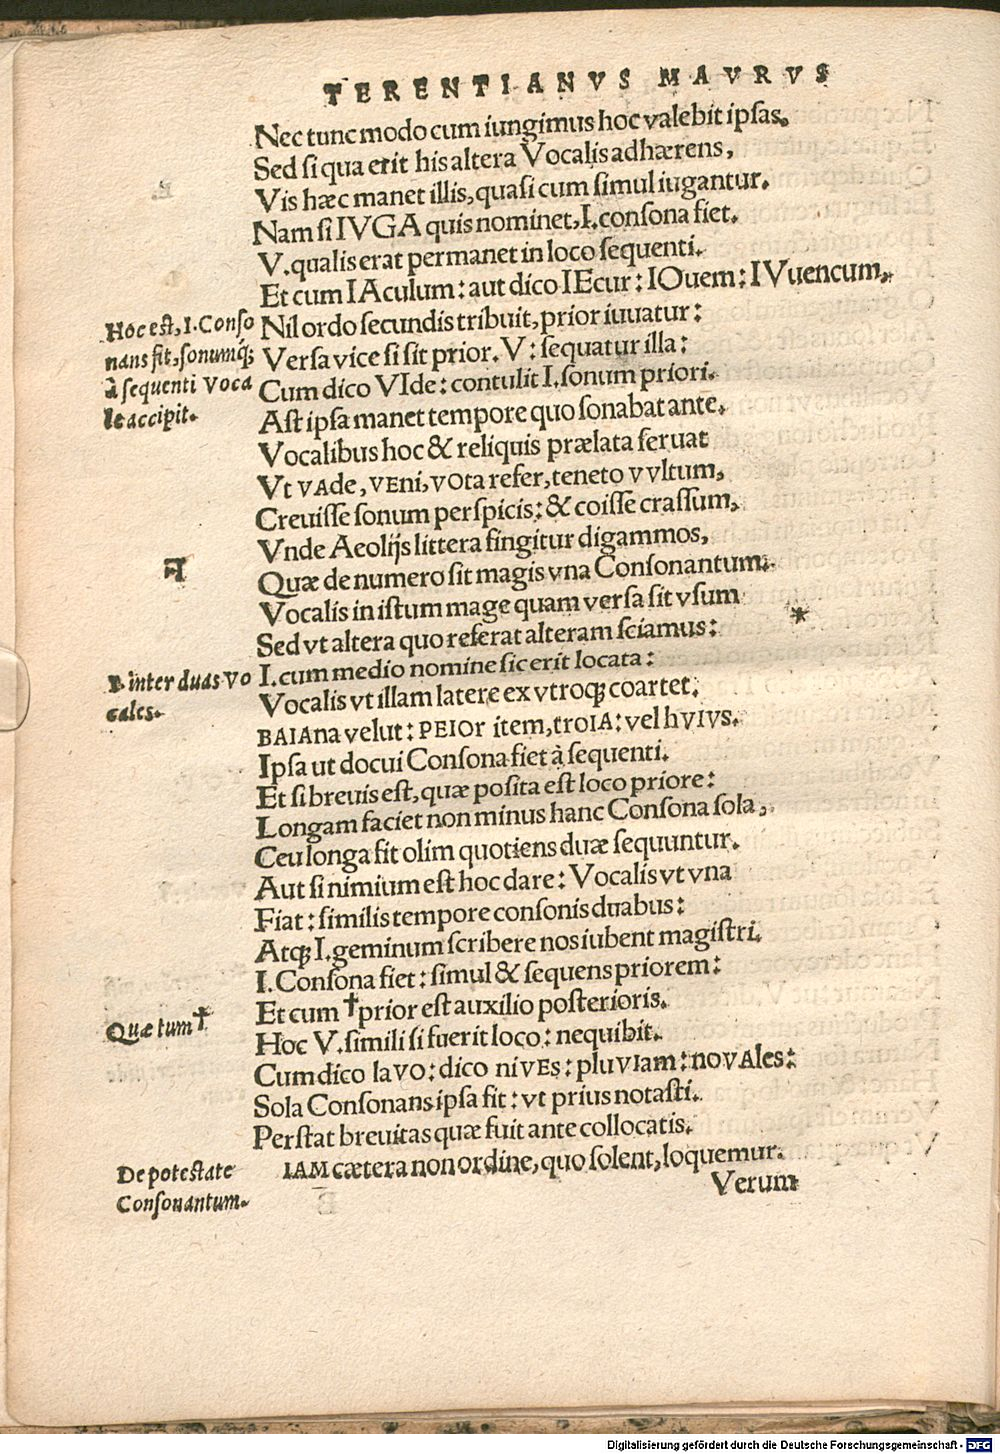 TERENTIANVS MAVRVS
Nec tunc modo cum iungimus hoc valebit ipſas.
Sed ſi qua erit his altera Vocalis adhærens,
Vis hæc manet illis, quaſi cum ſimul iugantur.
Nam ſi IVGA quis nominet, I. conſona fiet.
V. qualis erat permanet in loco ſequenti.
Et cum IAculum: aut dico IEcur: IOuem: IVuencum.
Hoc eſt, I. Conſo
nans fit, ſonumq;
à ſequenti Voca
le accipit.
Nil ordo ſecundis tribuit, prior iuuatur:
Verſa vice ſi ſit prior. V: ſequatur illa:
Cum dico VIde: contulit I. ſonum priori.
Aſt ipſa manet tempore quo ſonabat ante.
Vocalibus hoc & reliquis prælata ſeruat
Vt VAde, VEni, VOta refer, teneto VVltum,
Creuiſſe ſonum perſpicis: & coiſſe craſſum,
Vnde Aeolijs littera fingitur digammos,
Quæ de numero ſit magis vna Conſonantum.
Vocalis in iſtum mage quam verſa ſit vſum *
Sed vt altera quo referat alteram ſciamus:
I. inter duas Vo
cales.
I. cum medio nomine ſic erit locata:
Vocalis vt illam latere ex vtroq; coartet:
BAIAna velut: PEIOr item, troIA: vel hVIVS.
Ipſa ut docui Conſona fiet à ſequenti.
Et ſi breuis eſt, quæ poſita eſt loco priore:
Longam faciet non minus hanc Conſona ſola,
Ceu longa fit olim quotiens duæ ſequuntur.
Aut ſi nimium eſt hoc dare: Vocalis vt vna
Fiat: ſimilis tempore conſonis duabus:
Atq; I. geminum ſcribere nos iubent magiſtri,
I. Conſona fiet: ſimul & ſequens priorem:
Quæ tum †
Et cum † prior eſt auxilio poſterioris.
Hoc V. ſimili ſi fuerit loco: nequibit.
Cum dico laVO: dico niVEs: pluVIam: noVAles:
Sola Conſonans ipſa fit: vt prius notaſti.
Perſtat breuitas quæ fuit ante collocatis.
De poteſtate
Conſonantum.
IAM cætera non ordine, quo ſolent, loquemur.
Verum
Digitalisierung gefördert durch die Deutsche Forschungsgemeinschaft - DFG